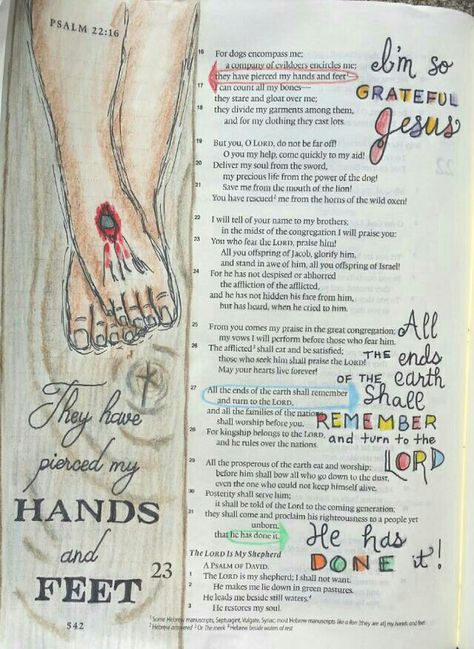 PSALM 22:16
They have
pierced my
HANDS
and
FEET
542
16 For dogs encompass me;
a company of evildoers encircles me;
they have pierced my hands and feet¹
17 I can count all my bones—
they stare and gloat over me;
18 they divide my garments among them,
and for my clothing they cast lots.
19 But you, O LORD, do not be far off!
O you my help, come quickly to my aid!
20 Deliver my soul from the sword,
my precious life from the power of the dog!
21 Save me from the mouth of the lion!
You have rescued² me from the horns of the wild oxen!
22 I will tell of your name to my brothers;
in the midst of the congregation I will praise you:
23 You who fear the LORD, praise him!
All you offspring of Jacob, glorify him,
and stand in awe of him, all you offspring of Israel!
24 For he has not despised or abhorred
the affliction of the afflicted,
and he has not hidden his face from him,
but has heard, when he cried to him.
25 From you comes my praise in the great congregation;
my vows I will perform before those who fear him.
26 The afflicted³ shall eat and be satisfied;
those who seek him shall praise the LORD!
May your hearts live forever!
27 All the ends of the earth shall remember
and turn to the LORD,
and all the families of the nations
shall worship before you.
28 For kingship belongs to the LORD,
and he rules over the nations.
29 All the prosperous of the earth eat and worship;
before him shall bow all who go down to the dust,
even the one who could not keep himself alive.
30 Posterity shall serve him;
it shall be told of the Lord to the coming generation;
31 they shall come and proclaim his righteousness to a people yet
unborn,
that he has done it.
The LORD Is My Shepherd
A PSALM OF DAVID.
23
1 The LORD is my shepherd; I shall not want.
2 He makes me lie down in green pastures.
He leads me beside still waters.⁴
3 He restores my soul.
¹ Some Hebrew manuscripts, Septuagint, Vulgate, Syriac; most Hebrew manuscripts like a lion [they are at] my hands and feet
² Hebrew answered ³ Or The meek ⁴ Hebrew beside waters of rest
I'm so
GRATEFUL
Jesus
All
THE ends
OF THE earth
Shall
REMEMBER
and turn to the
LORD
He has
DONE it!